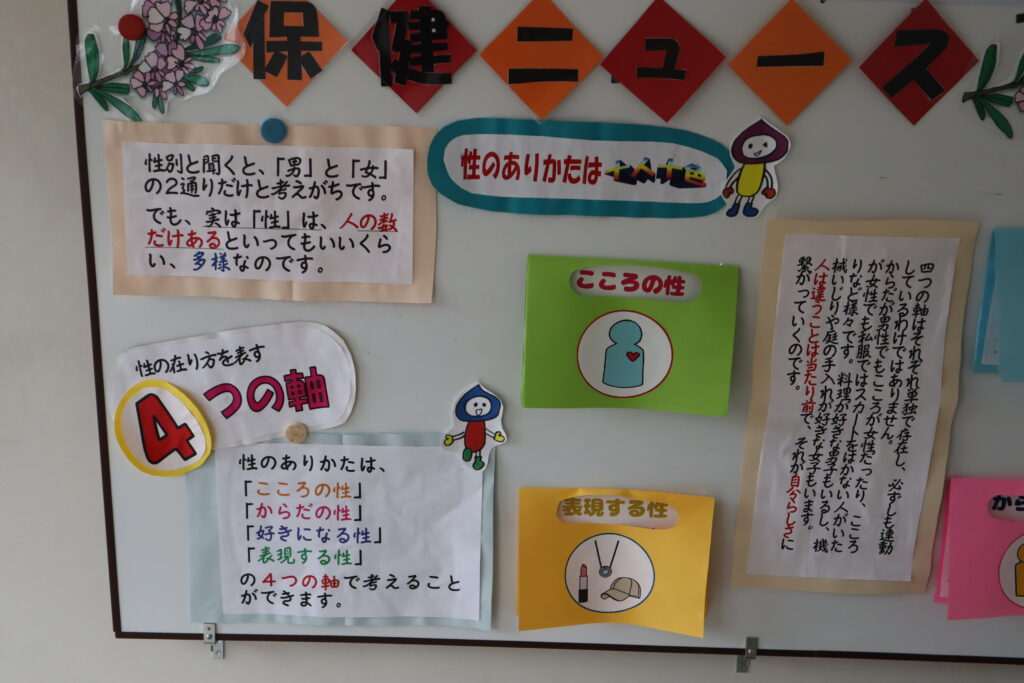 保健ニュース
性別と聞くと、「男」と「女」
の２通りだけと考えがちです。
でも、実は「性」は、人の数
だけあるといってもいいくら
い、多様なのです。
性のありかたは 十人十色
性の在り方を表す
4つの軸
性のありかたは、
「こころの性」
「からだの性」
「好きになる性」
「表現する性」
の４つの軸で考えること
ができます。
こころの性
表現する性
四つの軸はそれぞれ単独で存在し、必ずしも連動
しているわけではありません。
からだが男性でもこころが女性だったり、こころ
が女性でも私服ではスカートをはかない人がいた
りなど様々です。料理が好きな男子もいるし、機
械いじりや庭の手入れが好きな女子もいます。
人は違うことは当たり前で、それが自分らしさに
繋がっていくのです。
から